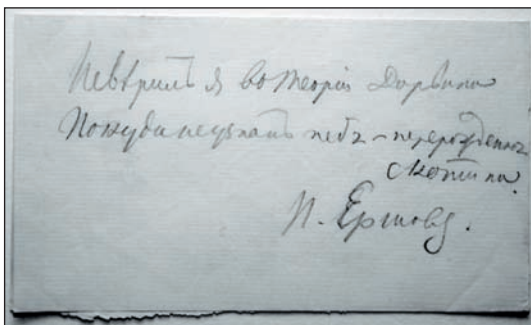 Не вѣрилъ я во теорiи Дарвина
Покуда не узналъ тебя – перерожденная
скотина.
П. Ершовъ.